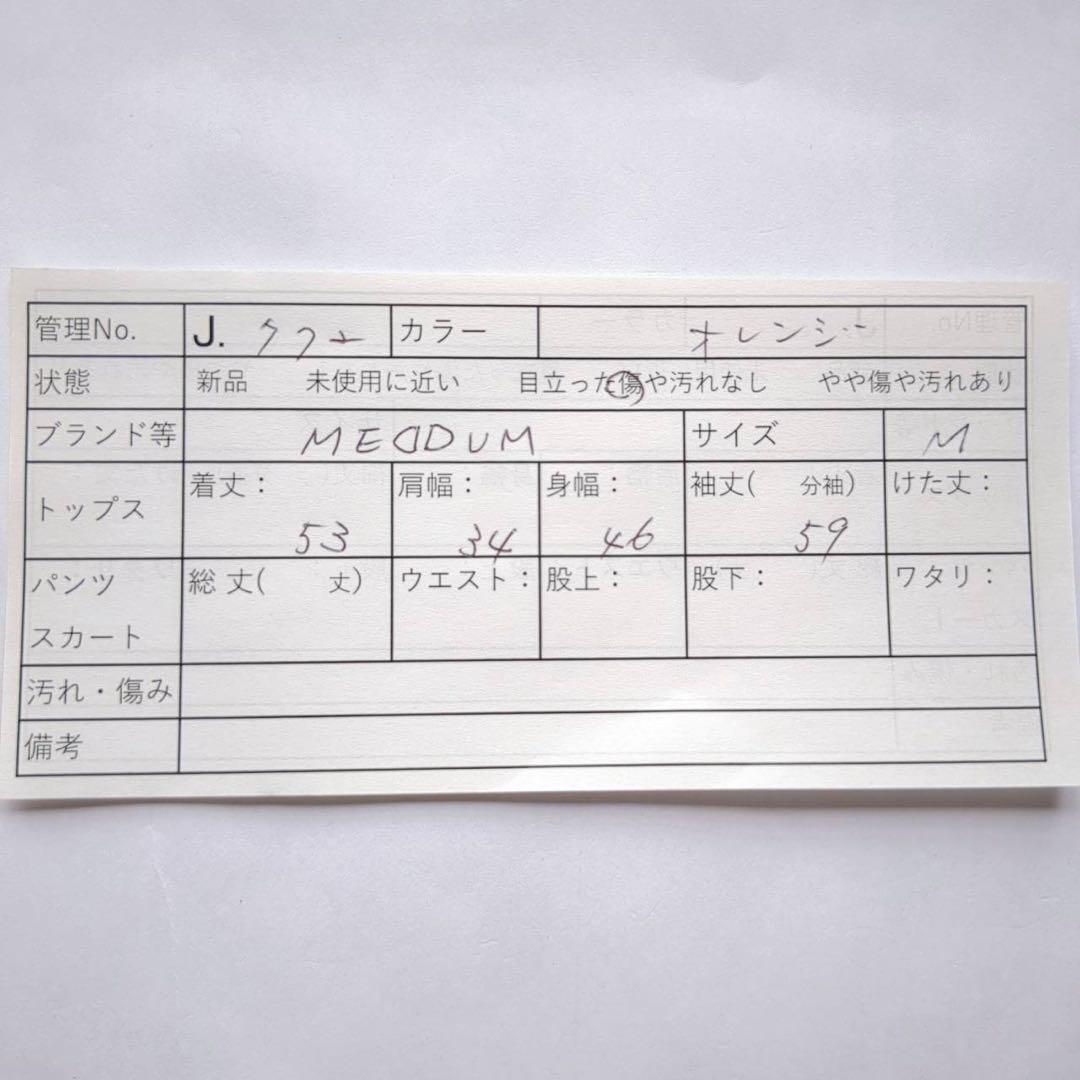 管理No. J. カラー オレンジ
状態 新品 未使用に近い 目立った傷や汚れなし やや傷や汚れあり
ブランド等 サイズ M
トップス 着丈： 53 肩幅： 34 身幅： 46 袖丈( 分袖) 59 けた丈：
パンツ 総丈( 丈) ウエスト： 股上： 股下： ワタリ：
スカート
汚れ・傷み
備考